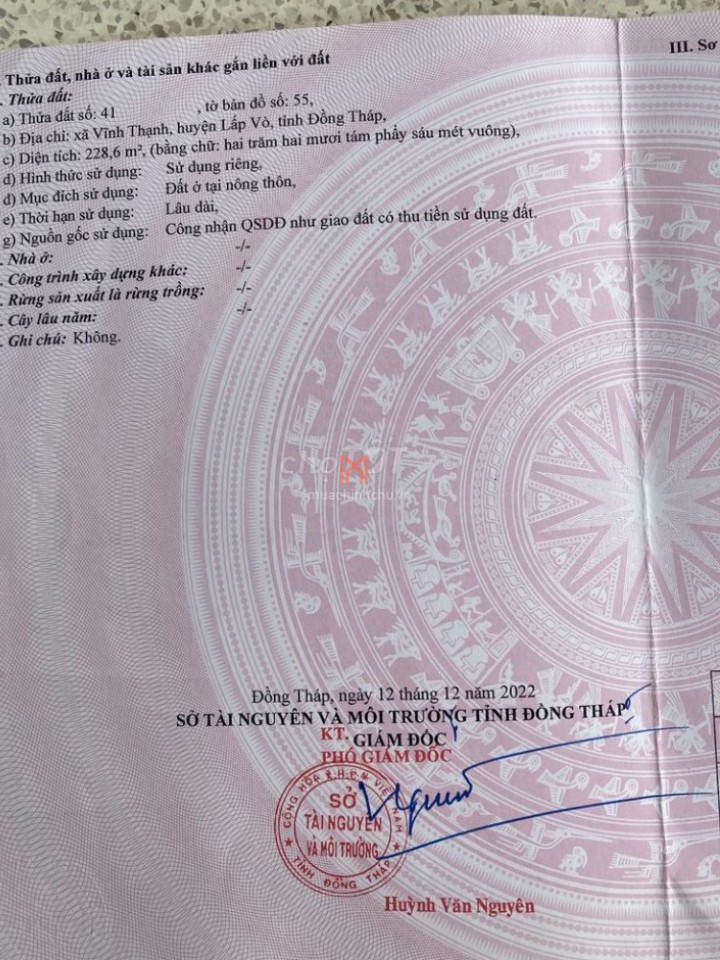 III. Sơ
. Thửa đất, nhà ở và tài sản khác gắn liền với đất
. Thửa đất:
a) Thửa đất số: 41 , tờ bản đồ số: 55,
b) Địa chỉ: xã Vĩnh Thạnh, huyện Lấp Vò, tỉnh Đồng Tháp,
c) Diện tích: 228,6 m², (bằng chữ: hai trăm hai mươi tám phẩy sáu mét vuông),
d) Hình thức sử dụng: Sử dụng riêng,
đ) Mục đích sử dụng: Đất ở tại nông thôn,
e) Thời hạn sử dụng: Lâu dài,
g) Nguồn gốc sử dụng: Công nhận QSDĐ như giao đất có thu tiền sử dụng đất.
. Nhà ở: -/-
. Công trình xây dựng khác: -/-
. Rừng sản xuất là rừng trồng: -/-
. Cây lâu năm: -/-
. Ghi chú: Không.
Đồng Tháp, ngày 12 tháng 12 năm 2022
SỞ TÀI NGUYÊN VÀ MÔI TRƯỜNG TỈNH ĐỒNG THÁP
KT. GIÁM ĐỐC
PHÓ GIÁM ĐỐC
CỘNG HÒA X.H.C.N VIỆT NAM
SỞ
TÀI NGUYÊN
VÀ MÔI TRƯỜNG
TỈNH ĐỒNG THÁP
Huỳnh Văn Nguyên